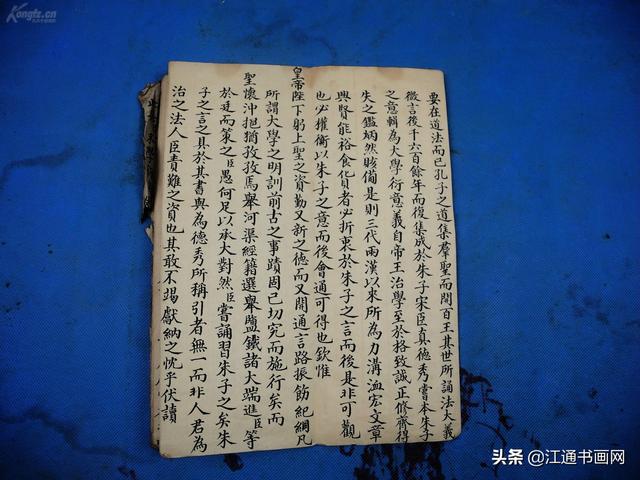 要在道法而已孔子之道集羣聖而開百王其世所誦法大義
微言後千六百餘年而後集成於朱子宋臣真德秀嘗本朱子
之意輯為大學衍意義自帝王治學至於格致誠正修齊得
失之鑑炳然賅備是則三代兩漢以來所為力溝洫宏文章
興賢能裕食化貨者必折衷於朱子之言而後是非可觀
也必權衡以朱子之意而後會通可得也欽惟
皇帝陛下躬上聖之資勤又新之德而又開通言路振飭紀綱凡
所謂大學之明訓前古之事蹟固已切究而施行矣而
聖懷沖挹猶孜孜焉舉河渠經籍選舉鹽鐵諸大端進臣等
於廷而策之臣愚何足以承大對然臣嘗誦習朱子之矣朱
子之言之具於其書與為德秀所稱引者無一而非人君為
治之法人臣責難之資也其敢不竭獻納之忱乎伏讀
Kongfz.cn
头条 @江通书画网